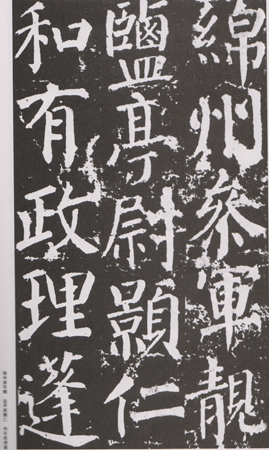 綿州叅軍靚
鹽亭尉顥仁
和有政理蓬